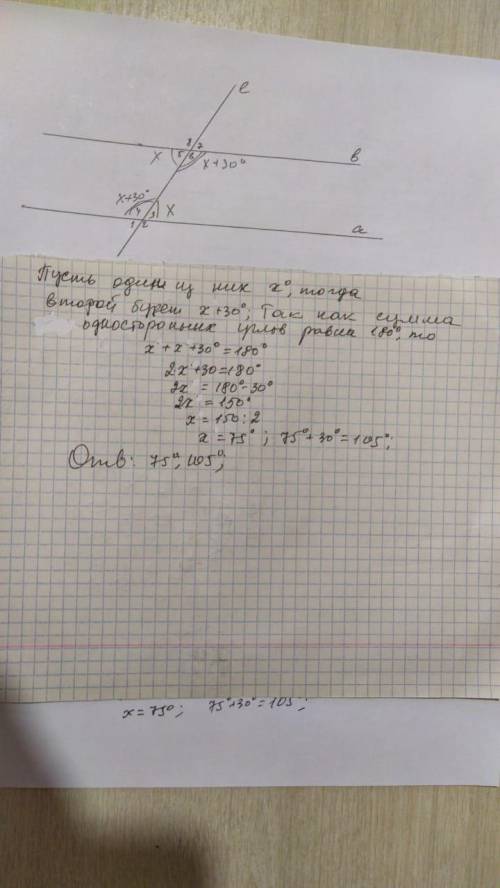 c
8 7
5 6
x
x+30°
в
x+30°
4 3
x
1 2
a
Пусть один из них x°, тогда
второй будет x+30°; Так как сумма
односторонних углов равна 180°, то
x+x+30°=180°
2x+30=180°
2x = 180°-30°
2x = 150°
x = 150:2
x = 75° ; 75°+30°=105°;
Отв: 75°, 105°;
x = 75°; 75°+30°=105°;